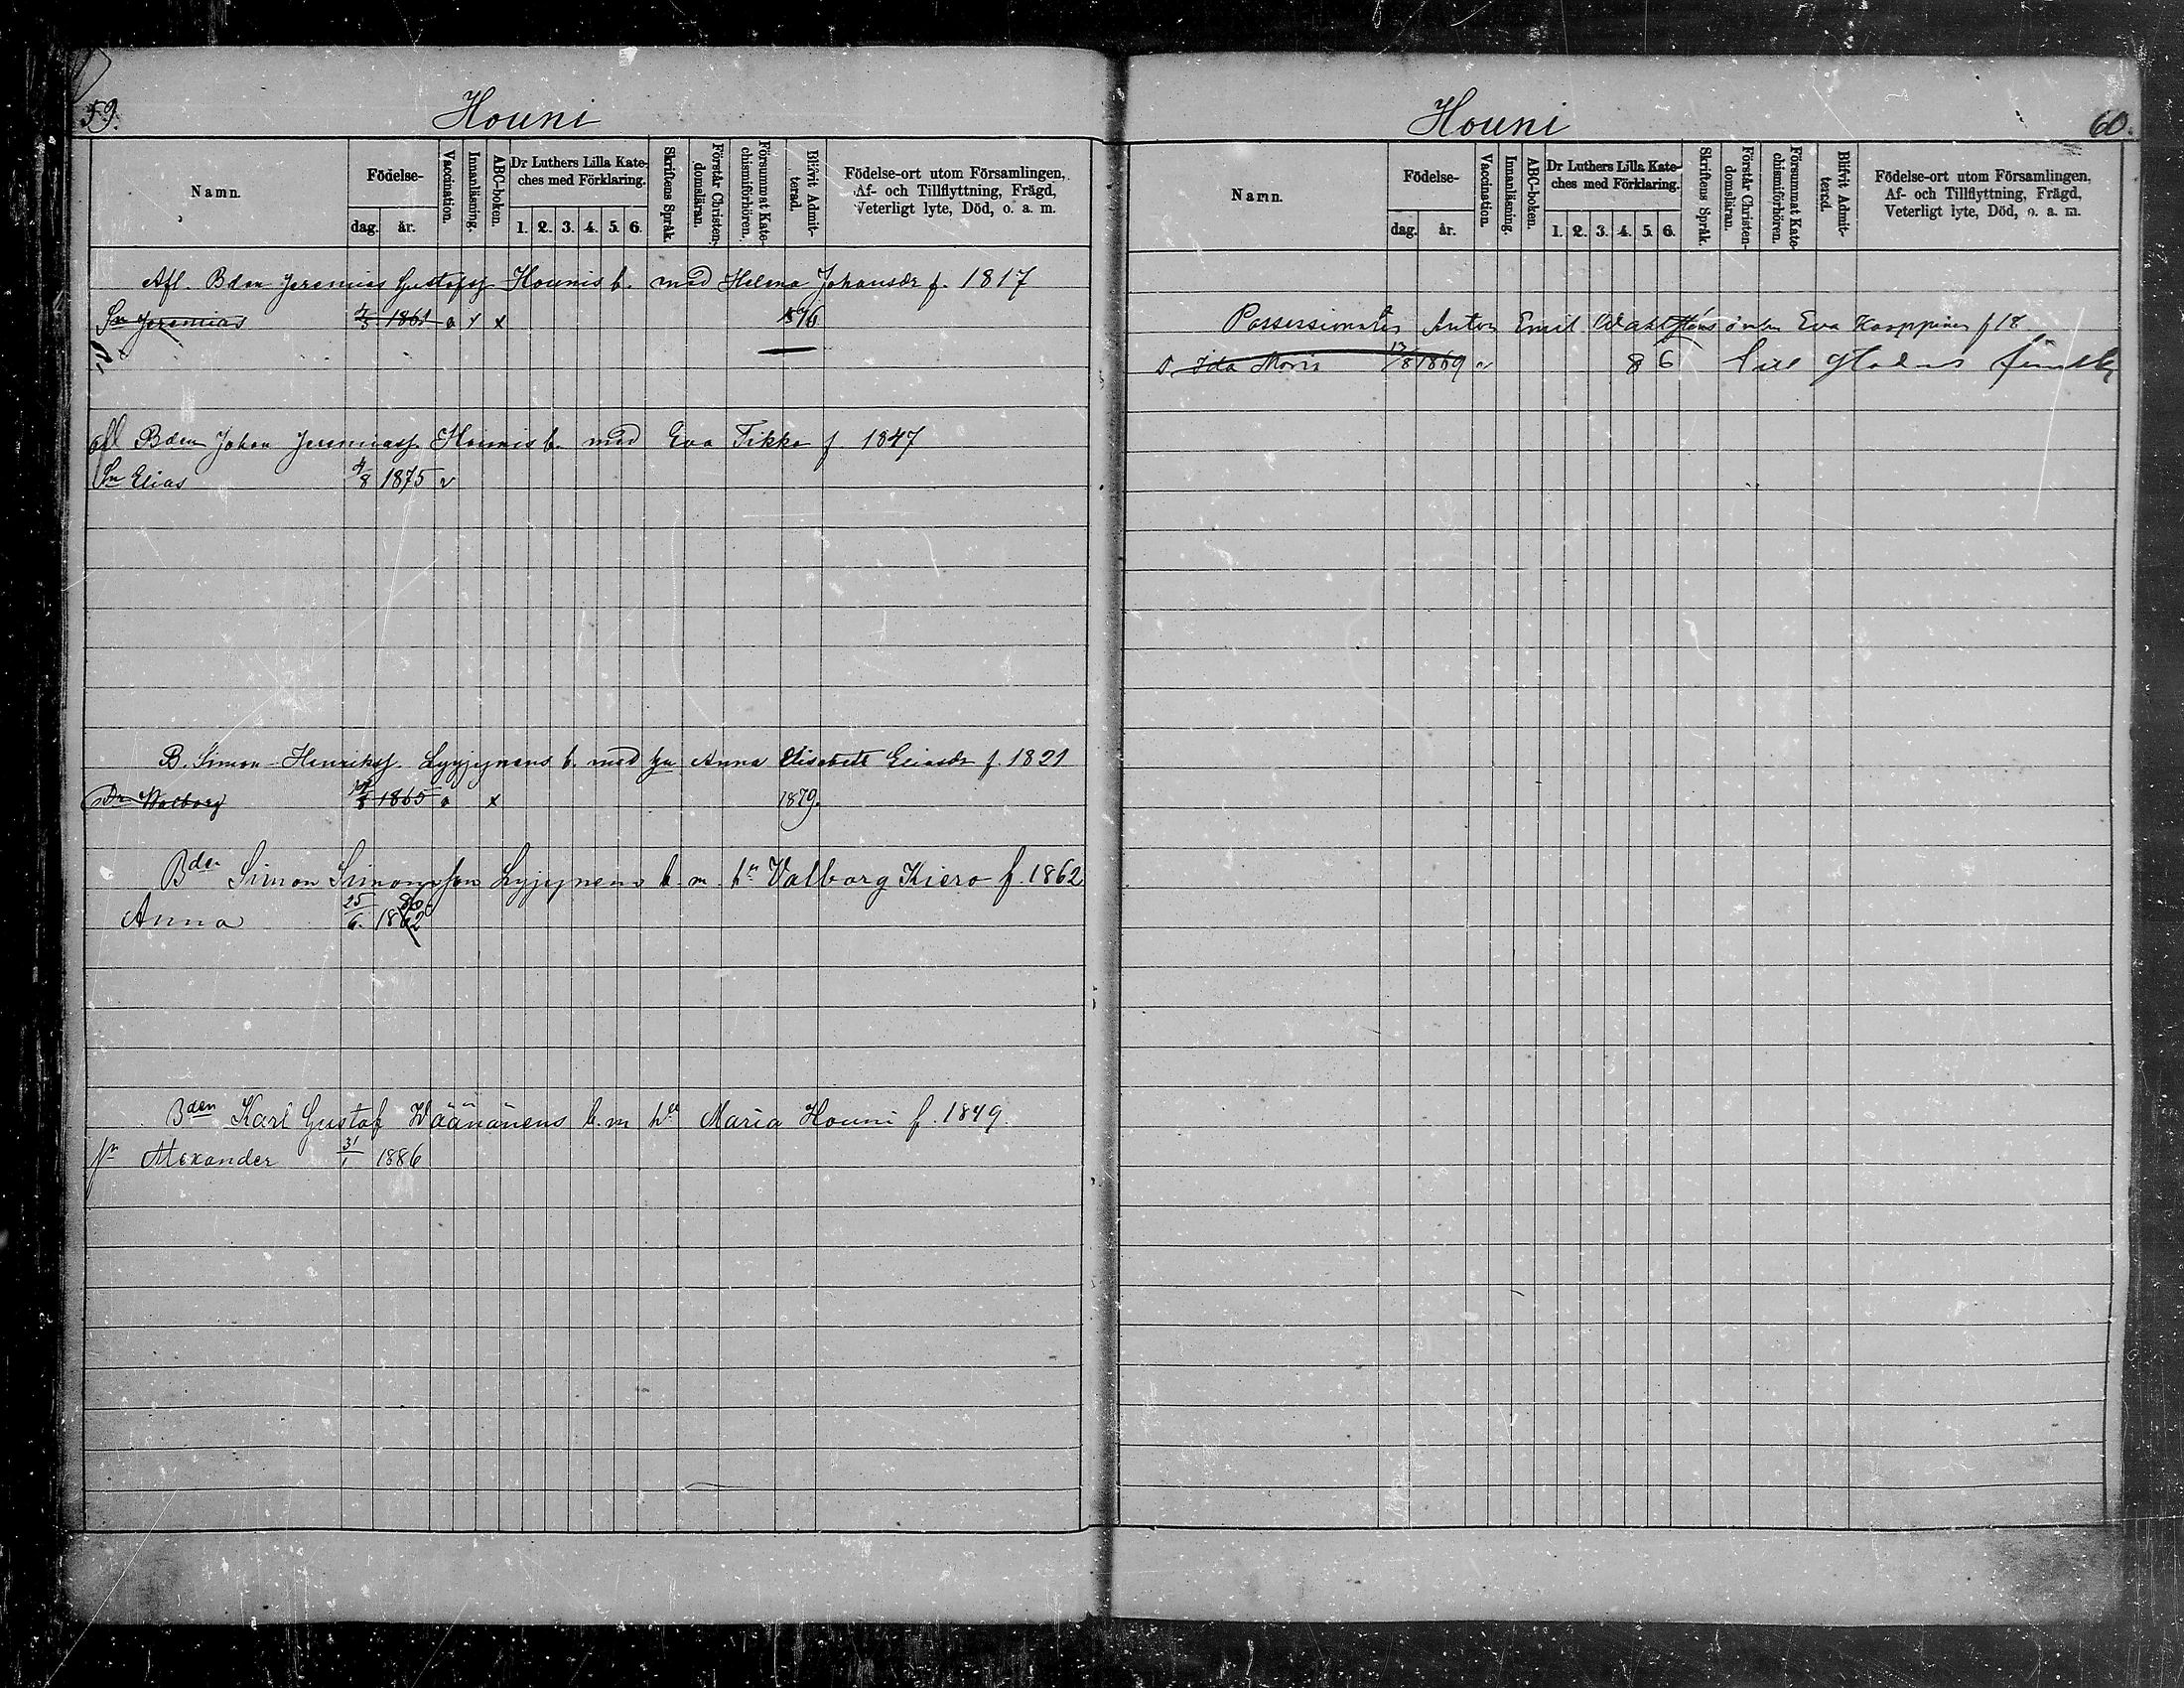 59.
Houni
Namn.
Födelse-
dag.
år.
Vaccination.
Innanläsning.
ABC-boken.
Dr Luthers Lilla Kate-
ches med Förklaring.
1. 2. 3. 4. 5. 6.
Skriftens Språk.
Förstår Christen-
domsläran.
Försummat Kate-
chismiförhören.
Blifvit Admit-
terad.
Födelse-ort utom Församlingen,
Af- och Tillflyttning, Frägd,
Veterligt lyte, Död, o. a. m.
Afl. Bden Jeremias Gustafss Hounis b. med Helena Johansdr f. 1817
Sn Jeremias 1861 x x
afl Bden Johan Jeremiass. Hounis b. med Eva Tikka f 1847
Sn Elias 4/8 1875 v
B. Simon Henrikss. Lyyjynens b. med hu Anna Elisabeth Eliasdr f. 1821
Dr Walborg 1865 x 1879.
Bden Simon Simonsson Lyjynens b. m. hu Valborg Kiero f. 1862
Anna 25/6. 1862 86
Bden Karl Gustaf Wäänänens b. m hu Maria Houni f. 1849.
sn Alexander 31/1 1886
Houni
60.
Namn.
Födelse-
dag.
år.
Vaccination.
Innanläsning.
ABC-boken.
Dr Luthers Lilla Kate-
ches med Förklaring.
1. 2. 3. 4. 5. 6.
Skriftens Språk.
Förstår Christen-
domsläran.
Försummat Kate-
chismiförhören.
Blifvit Admit-
terad.
Födelse-ort utom Församlingen,
Af- och Tillflyttning, Frägd,
Veterligt lyte, Död, o. a. m.
Possessionaten Anton Emil Wahlsténs Eva Karppinen f 18
Ida Maria 1869 v 86 till